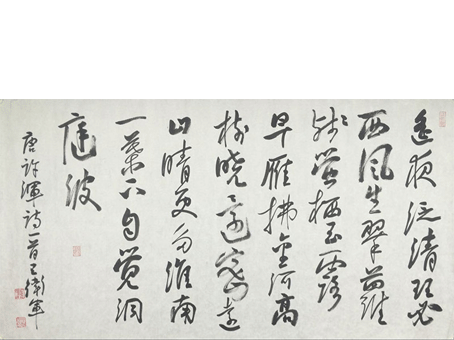 遙夜泛清瑟
西風生翠蘿
殘螢栖玉露
早雁拂金河高
樹曉還密遠
山晴更多淮南
一葉下自覺洞
庭波
唐許渾詩一首衛軍